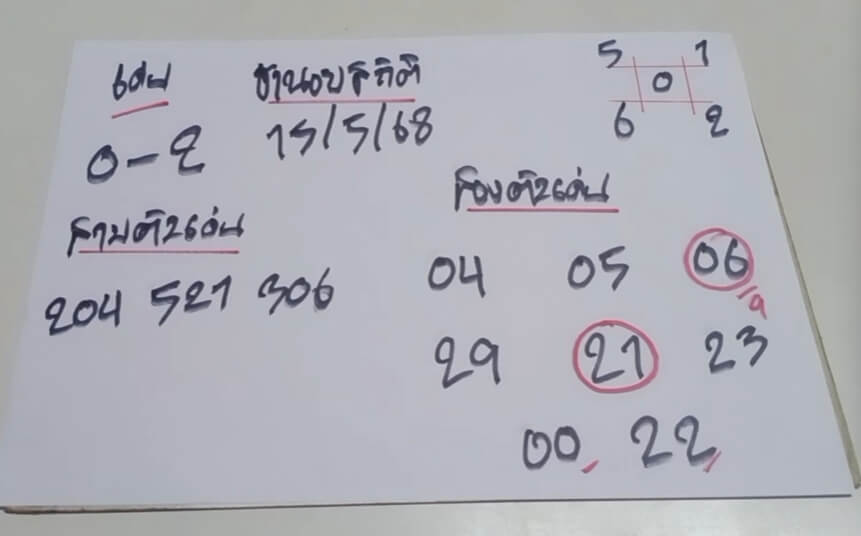 เด่น
ฐานอบสถิติ
15/5/68
0-2
5 1
0
6 2
สามตัวเด่น
204 521 306
สองตัวเด่น
04 05 06
29 21 23
00, 22,